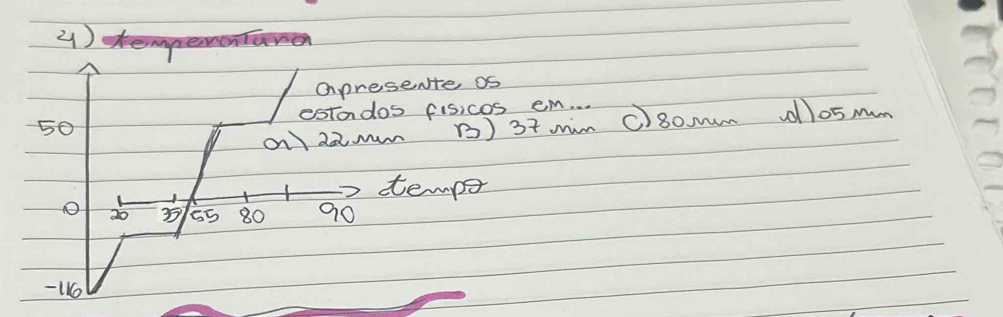 4) temperatura
apresente os
estados físicos em...
50
a) 22 min B) 37 min C) 80 min d) 05 min
tempo
0
20 35 55 80 90
-116